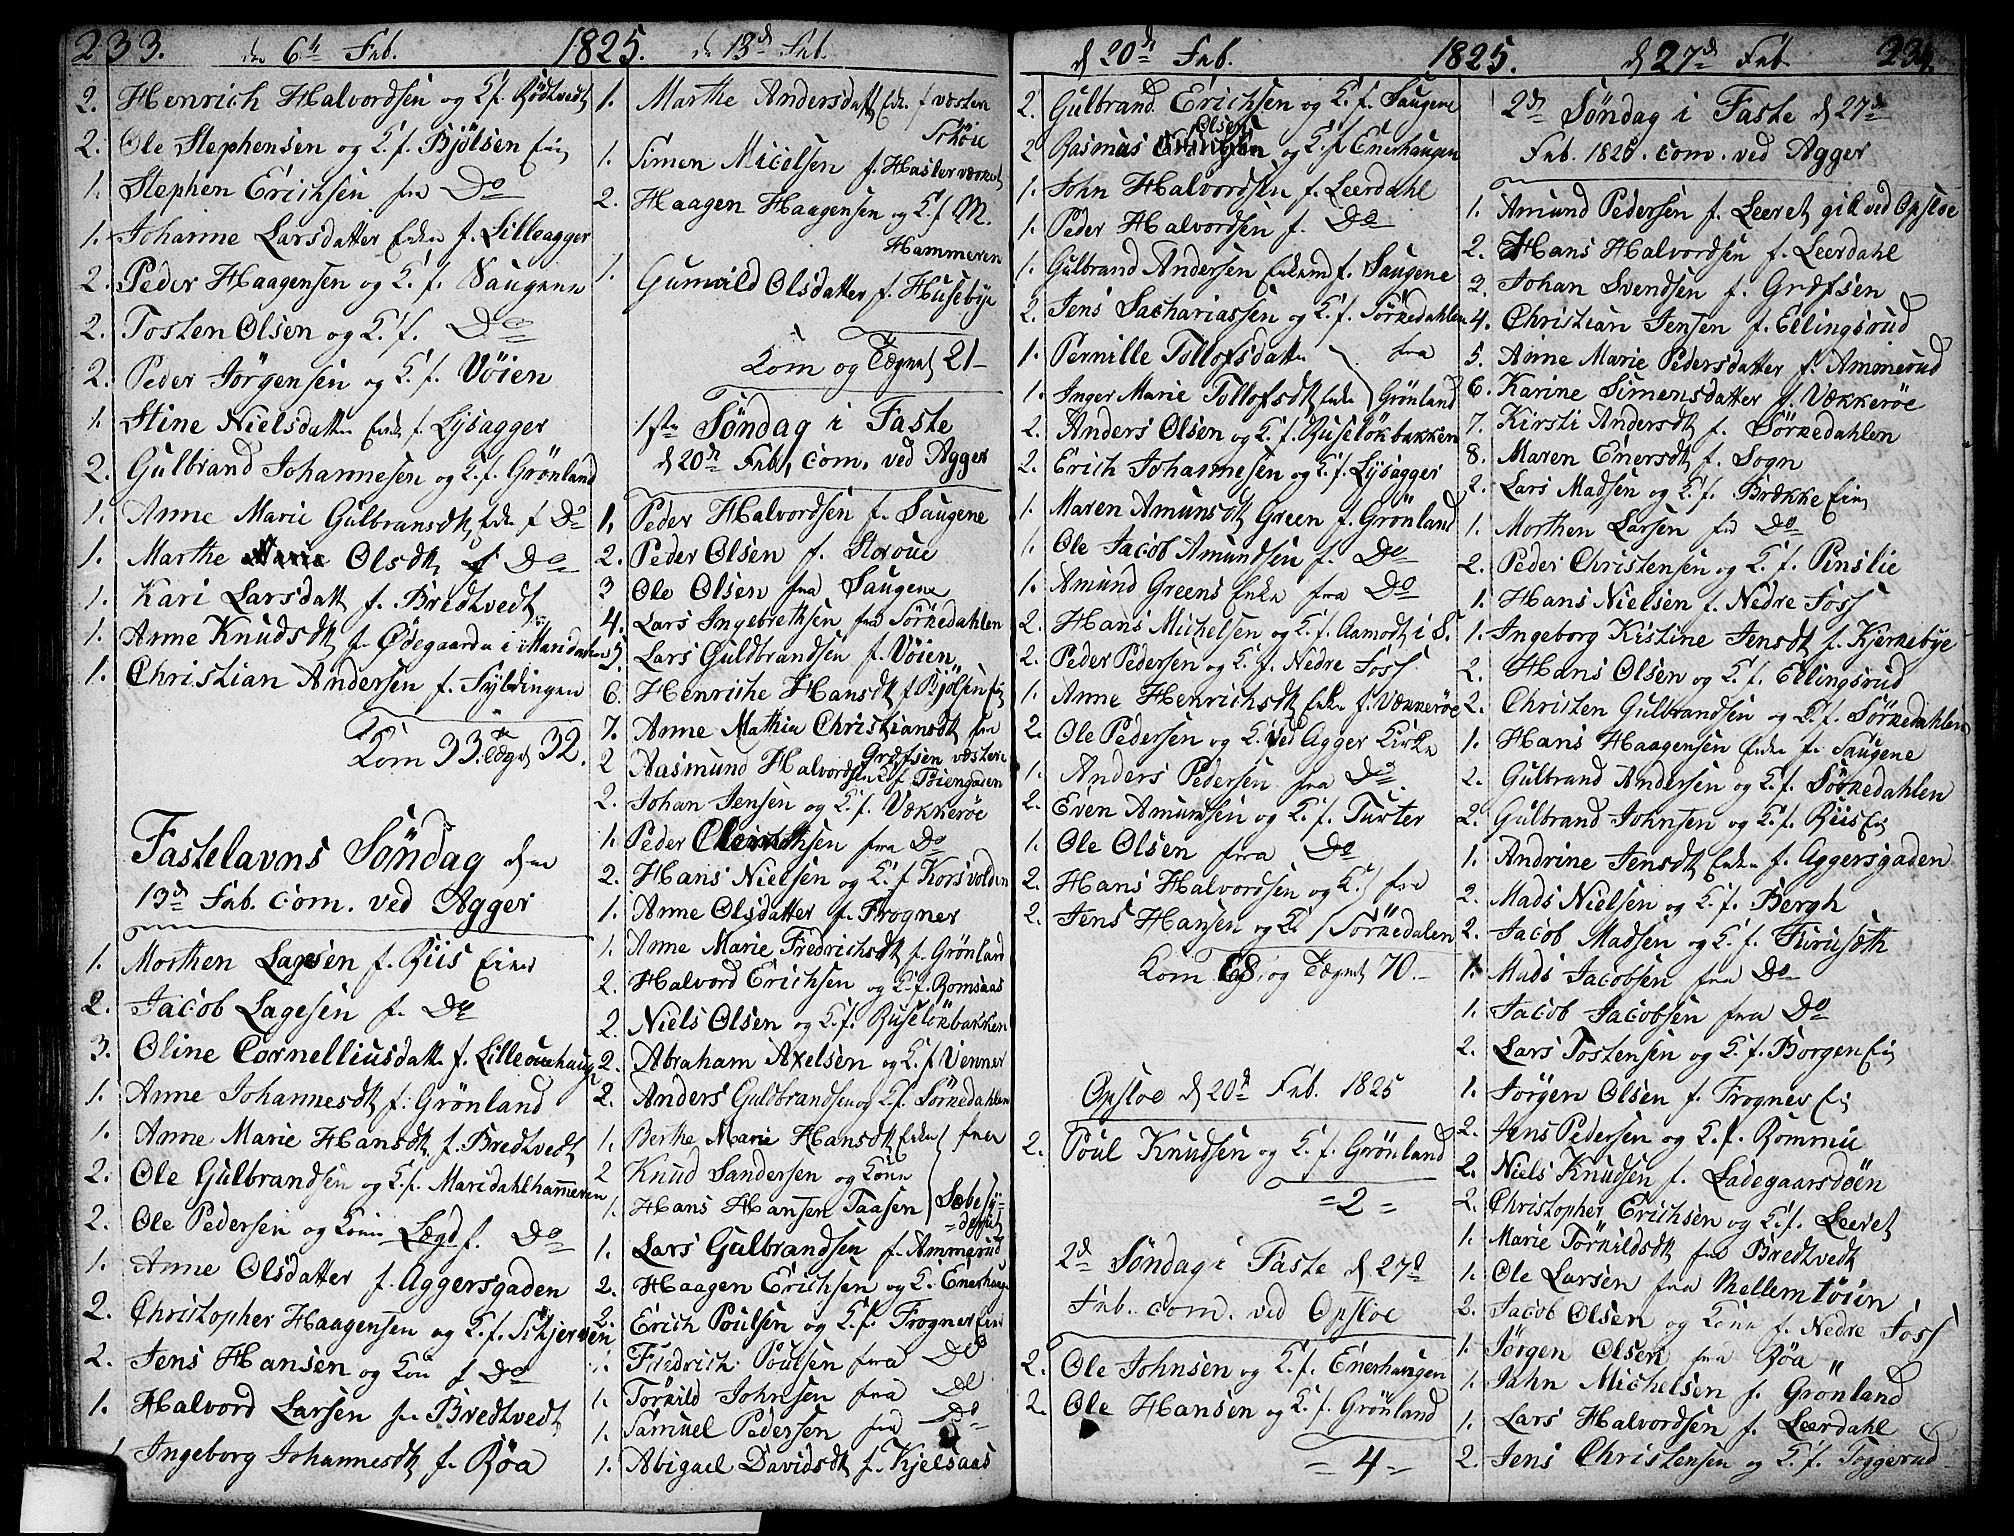 233. den 6te Feb. 1825. d 13de Feb.
2. Henrich Halvordsen og K. f. Rödtvedt
2. Ole Stephensen og K. f. Bjölsen Eie
1. Stephen Erichsen fra Do
1. Johanne Larsdatter Enke f. Lilleagger
2. Peder Haagensen og K. f. Saugene
2. Tosten Olsen og K. f. Do
2. Peder Jörgensen og K. f. Vöien
1. Stine Nielsdatter Enke f. Lysagger
2. Gulbrand Johannesen og K. f. Grönland
1. Anne Marie Gulbransdt Enke f Do
1. Marthe Olsdt f Do
1. Kari Larsdatt f. Bredtvedt
1. Anne Knudsdt f. Ödegaarden i Maridalen
1. Christian Andersen f. Fyldingen
Kom 33. tægn 32.
Fastelavns Söndag den
13de Feb. com. ved Agger
1. Morthen Lagesen f. Riis Eie
2. Jacob Lagesen f. Do
3. Oline Cornelliusdatt f. Lille
1. Anne Johannesdt f. Grönland
1. Anne Marie Hansdt f. Bredtvedt
2. Ole Gulbrandsen og K. f. Maridahlhammeren
2. Ole Pedersen og Kone Lægd f. Do
1. Anne Olsdatter f. Aggersgaden
2. Christopher Haagensen og K. f. Skjersöen
2. Jens Hansen og Kone f Do
1. Halvord Larsen fra Bredtvedt
1. Ingeborg Johannesdt f. Röa
1. Marthe Andersdatt Enke f vesten
Sköie
1. Simen Micelsen f. Haslerværket
2. Haagen Haagensen og K. f M.
Hammeren
1. Gunvild Olsdatter f. Husebye
Kom og Tægnet 21
1ste Söndag i Faste
d 20de Feb. com. ved Agger
1. Peder Halvordsen f. Saugene
2. Peder Olsen f. Storöue
3 Ole Olsen fra Saugene
4. Lars Ingebrethsen fra Sörkedahlen
5. Lars Guldbrandsen f. Vöien
6. Henriche Hansdt f Bjölsen Eie
7. Anne Mathia Christiansdt fra
Græfsen vestere
2 Aasmund Halvordsen K f. Töiengaden
2. Johan Jensen og K. f. Vækkeröe
1. Peder fra Do
2. Hans Nielsen og K. f Korsvolden
1. Anne Olsdatter f. Frogner
1. Anne Marie Fredrichsdt f. Grönland
2. Halvord Erichsen og K. f. Romsaas
2. Niels Olsen og K. f. Ruselökbakken
2. Abraham Axelsen og K. f Venner
2. Anders Guldbrandsen og K. f. Sörkedahlen
1. Berthe Marie Hansdt Enke fra
2 Knud Sandersen og Kone
1. Hans Hansen Taasen Sæbesy-
=deriet
1. Lars Gulbrandsen f. Ammerud
2. Haagen Erichsen og K. Enerhaugen
2. Erich Poulsen og K. f. Frogner Eie
1. Fredrich Poulsen fra Do
1. Torkild Johnsen fra Do
1. Samuel Pedersen fra Do
1. Abigael Davidsdt f. Kjelsaas
d 20de Feb. 1825. d 27de Feb. 234.
2. Gulbrand Erichsen og K. f. Saugene
Olsen
2 Rasmus og K. f Enerhaugen
1. John Halvordsen f. Leerdahl
1. Peder Halvordsen f. Do
1. Gulbrand Andersen Enkemd f. Saugene
2. Jens Sachariassen og K. f. Sörkedahlen
1. Pernille Tollofsdatter fra
1. Inger Marie Tollofsdt Enke Grönland
2. Anders Olsen og K. f. Ruselökbakken
2. Erich Johannesen og K. f. Lysagger
1. Maren Amunsdt Green f. Grönland
1. Ole Jacob Amundsen f. Do
1. Amund Greens Enke fra Do
2. Hans Michelsen og K. f. Aamodt i S.
2. Peder Pedersen og K. f. Nedre Foss
1. Anne Henrichsdt Enke f. Vækkeröe
2. Ole Pedersen og K. ved Agger Kirke
1. Anders Pedersen fra Do.
2. Even Amundsen og K. f. Turter
1. Ole Olsen fra Do
2. Hans Halvordsen og K. fra
2. Jens Hansen og K. Sörkedalen
Kom 68. og Tægnet 70.
Opsloe d 20de Feb. 1825
2. Poul Knudsen og K. f. Grönland
= 2 =
2d Söndag i Faste d 27de
Feb. com. ved Opsloe
2. Ole Johnsen og K. f. Enerhaugen
2. Ole Hansen og K. f. Grönland
= 4 =
2de Söndag i Faste d 27de
Feb. 1825. com. ved Agger
1. Amund Pedersen f. Leeret gik ved Opsloe
2. Hans Halvordsen f. Leerdahl
3. Johan Svendsen f. Græfsen
4. Christian Jensen f. Ellingsrud
5. Anne Marie Pedersdatter f. Ammerud
6. Karine Simensdatter f. Vækkeröe
7. Kirsti Andersdt f. Sörkedahlen
8. Maren Enersdt f. Sogn
2. Lars Madsen og K. f. Brække Eie
1. Morthen Larsen fra Do
2. Peder Christensen og K. f. Pinslie
1. Hans Nielsen f. Nedre Foss
1. Ingeborg Kistine Jensdt f. Kjernebye
2. Hans Olsen og K. f. Ellingsrud
2. Christen Gulbrandsen og K. f. Sörkedahlen
1. Hans Haagensen Enke f. Saugene
2. Gulbrand Andersen og K. f. Sörkedahlen
2. Gulbrand Johnsen og K. f. Riis Eie
1. Andrine Jensdt Enke f. Aggersgaden
2. Mads Nielsen og K. f. Bergh
2. Jacob Madsen og K. f. Furusæth
1. Mads Jacobsen fra Do
1. Jacob Jacobsen fra Do
2. Lars Tostensen og K. f. Borgen Eie
1. Jörgen Olsen f. Frogner Eie
2. Jens Pedersen og K. f. Rommu
2. Niels Knudsen f. Ladegaarsöen
2. Christopher Erichsen og K. f. Leeret
1. Marie Törkildsdt fra Bredtvedt
1. Ole Larsen fra Mellemtöien
2. Jacob Olsen og Kone f. Nedre Foss
1. Jörgen Olsen fra Röa
1. Jahn Michelsen f. Grönland
1. Lars Halvordsen f. Leerdahl
2. Jens Christensen og K. f. Toggerud